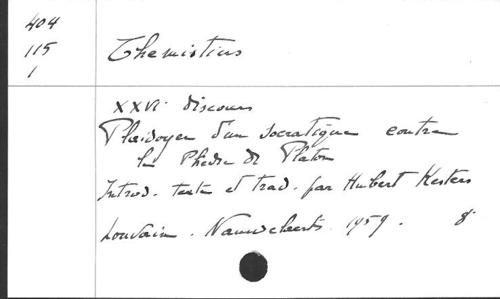 404
115
1
Themistius
XXVIe discours
Plaidoyer d'un socratique contre
le Phèdre de Platon
Introd. texte et trad. par Hubert Kesters
Louvain. Nauwelaerts. 1959. 8°